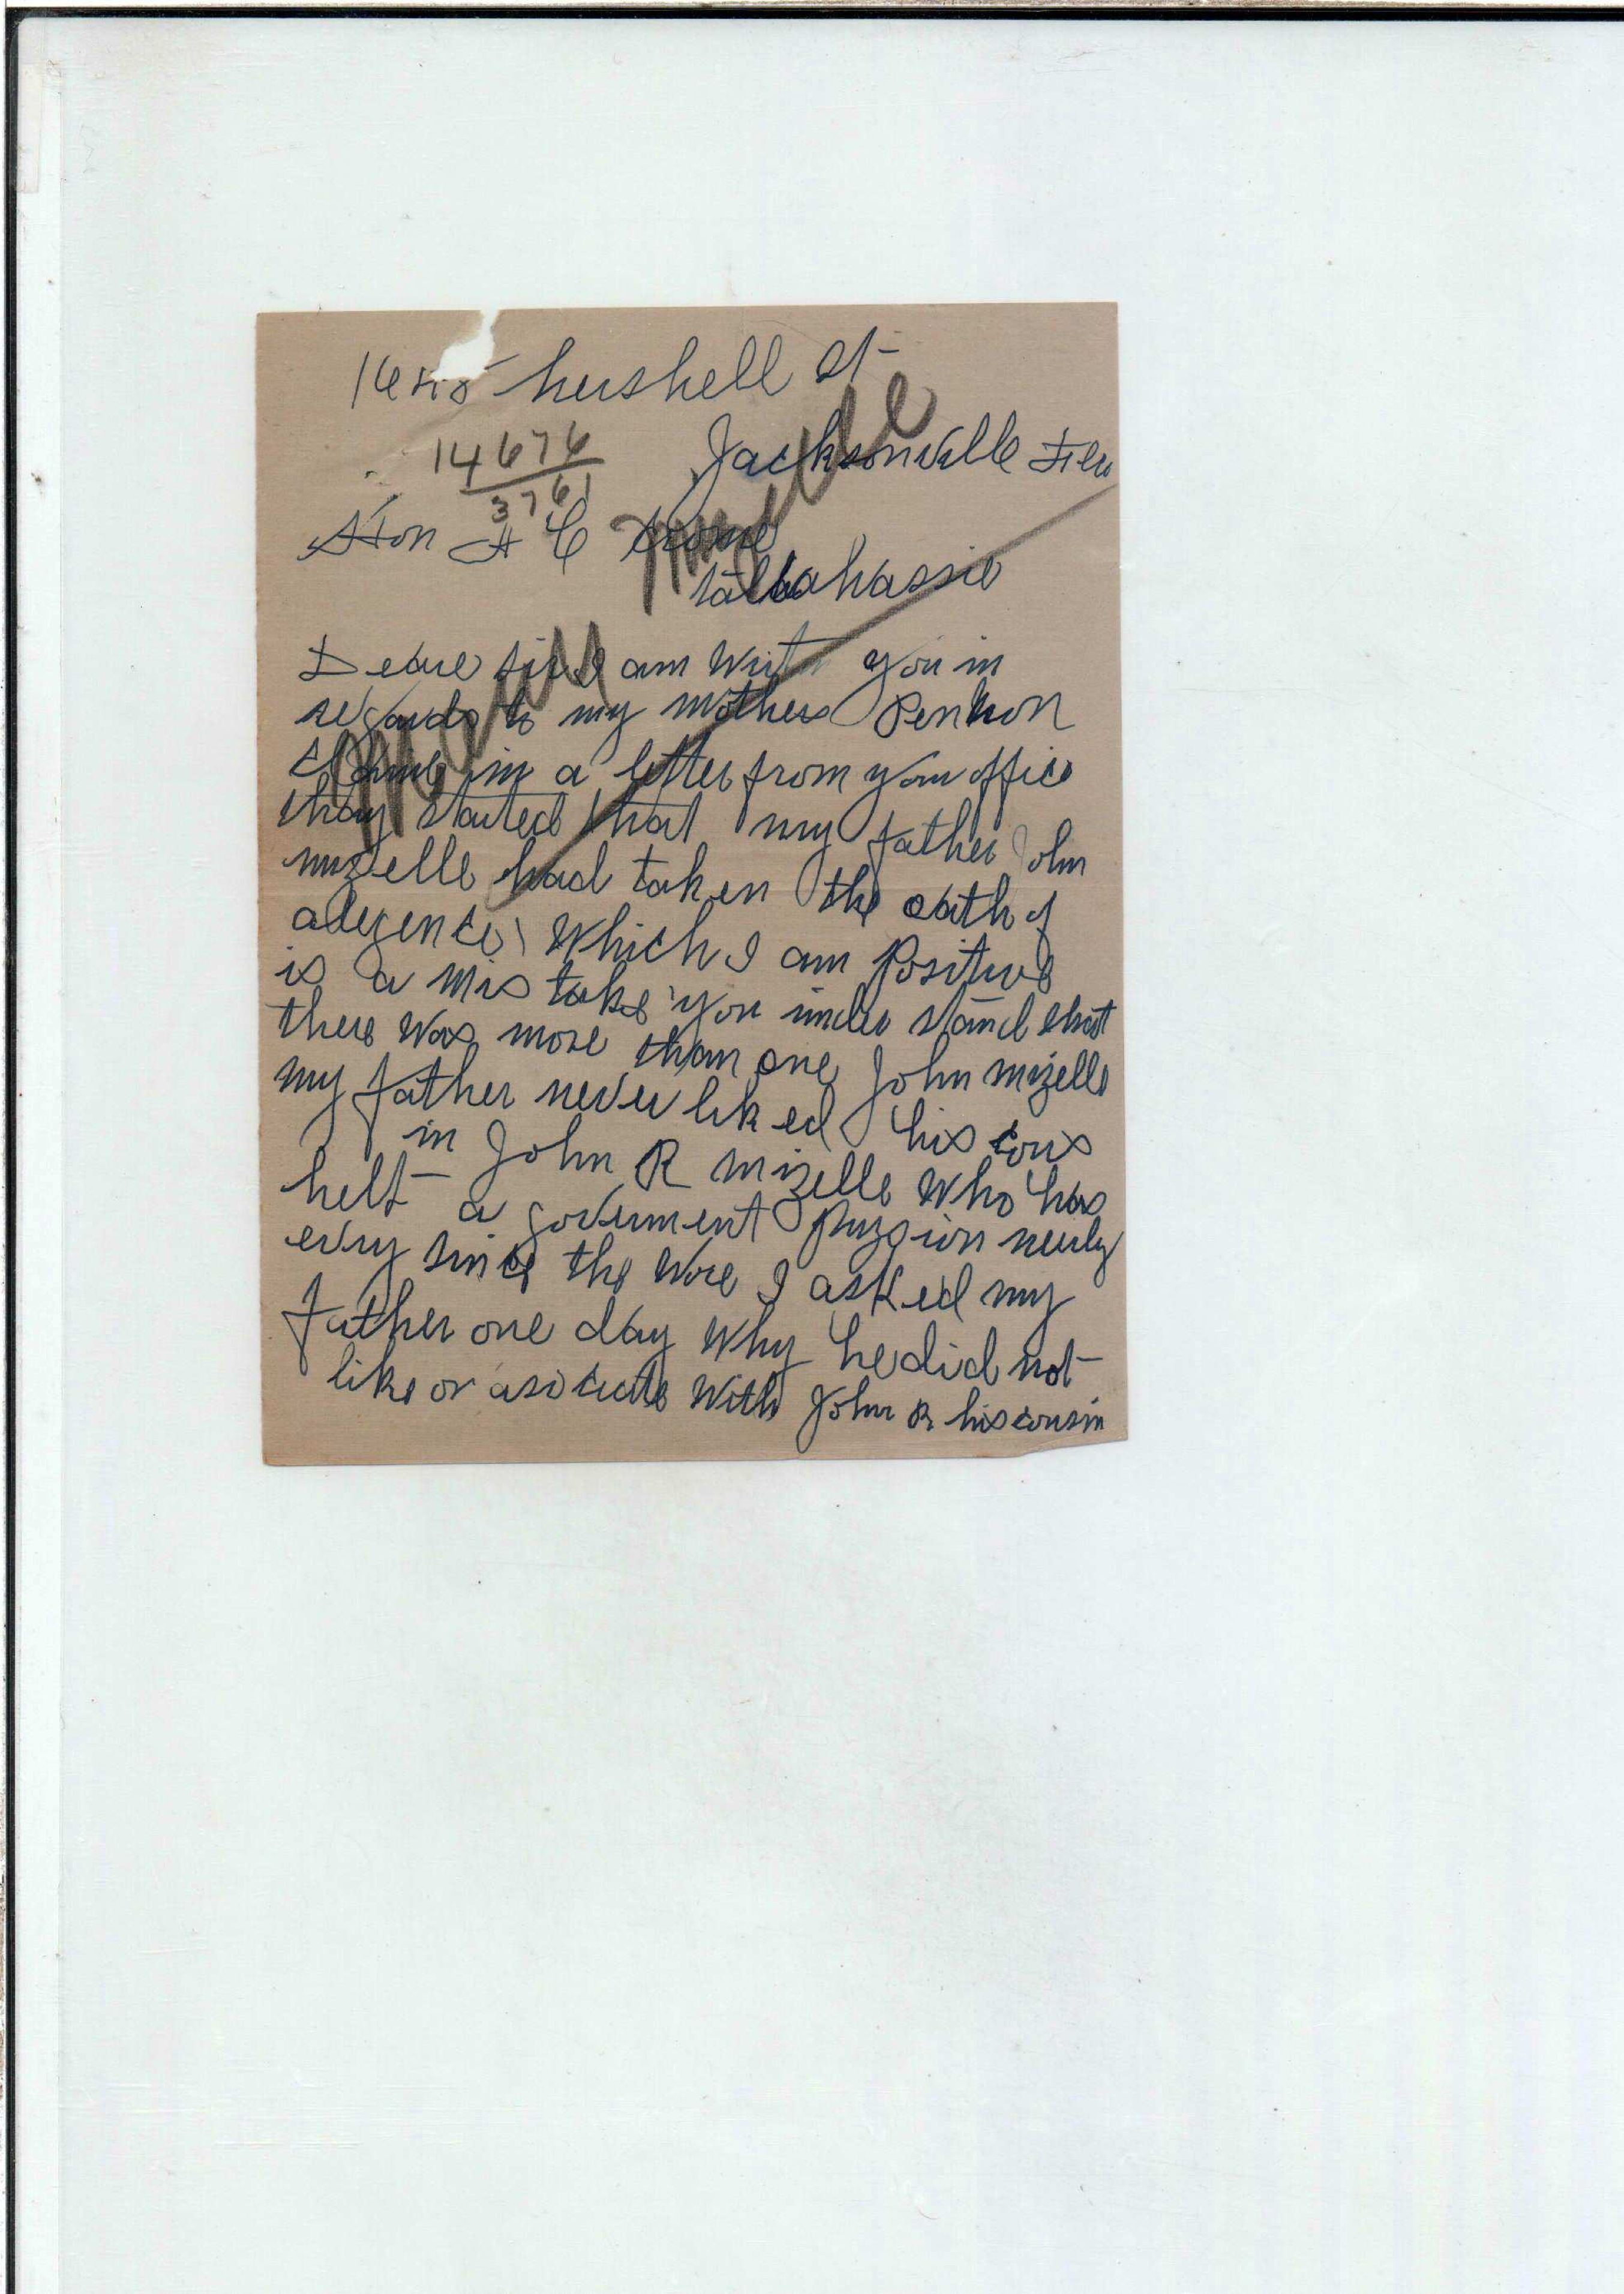 hershell St
Jacksonville Fla
14676
3761
Hon H C
tallahassie
Deare Sir I am you in
regards to my mothers Pension
in a letter from your office
thay stated that my father John
mizelle had taken the oath of
alegence Which I am Positive
is a mis take you under stand that
there Was more than one John mizelle
my father never liked his cous
in John R mizelle Who has
helt a goverment nearly
evry since the Wore I asked my
father one day Why he did not
like or asociate With John R his cousin